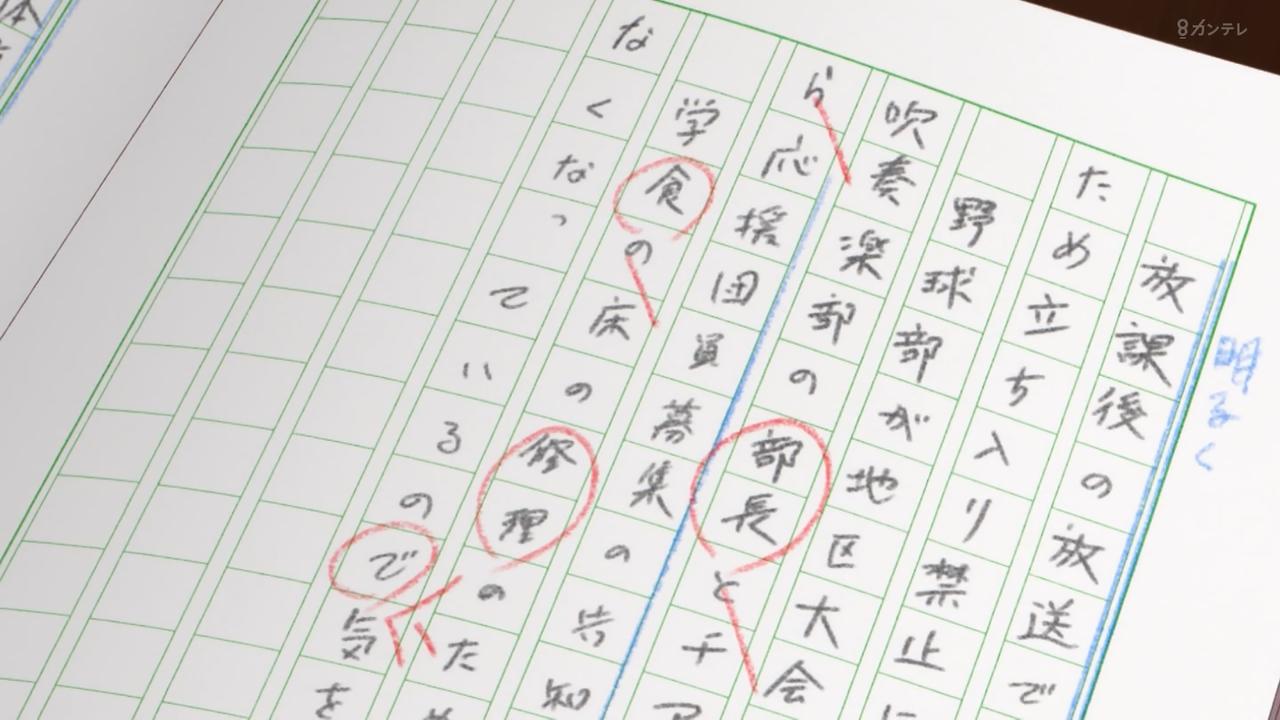 カンテレ
明るく
放課後の放送で
ため立ち入り禁止に
野球部が地区大会
吹奏楽部の部長とチア
ら応援団員募集の告知
学食の床の修理のため
なくなっているので気を
体